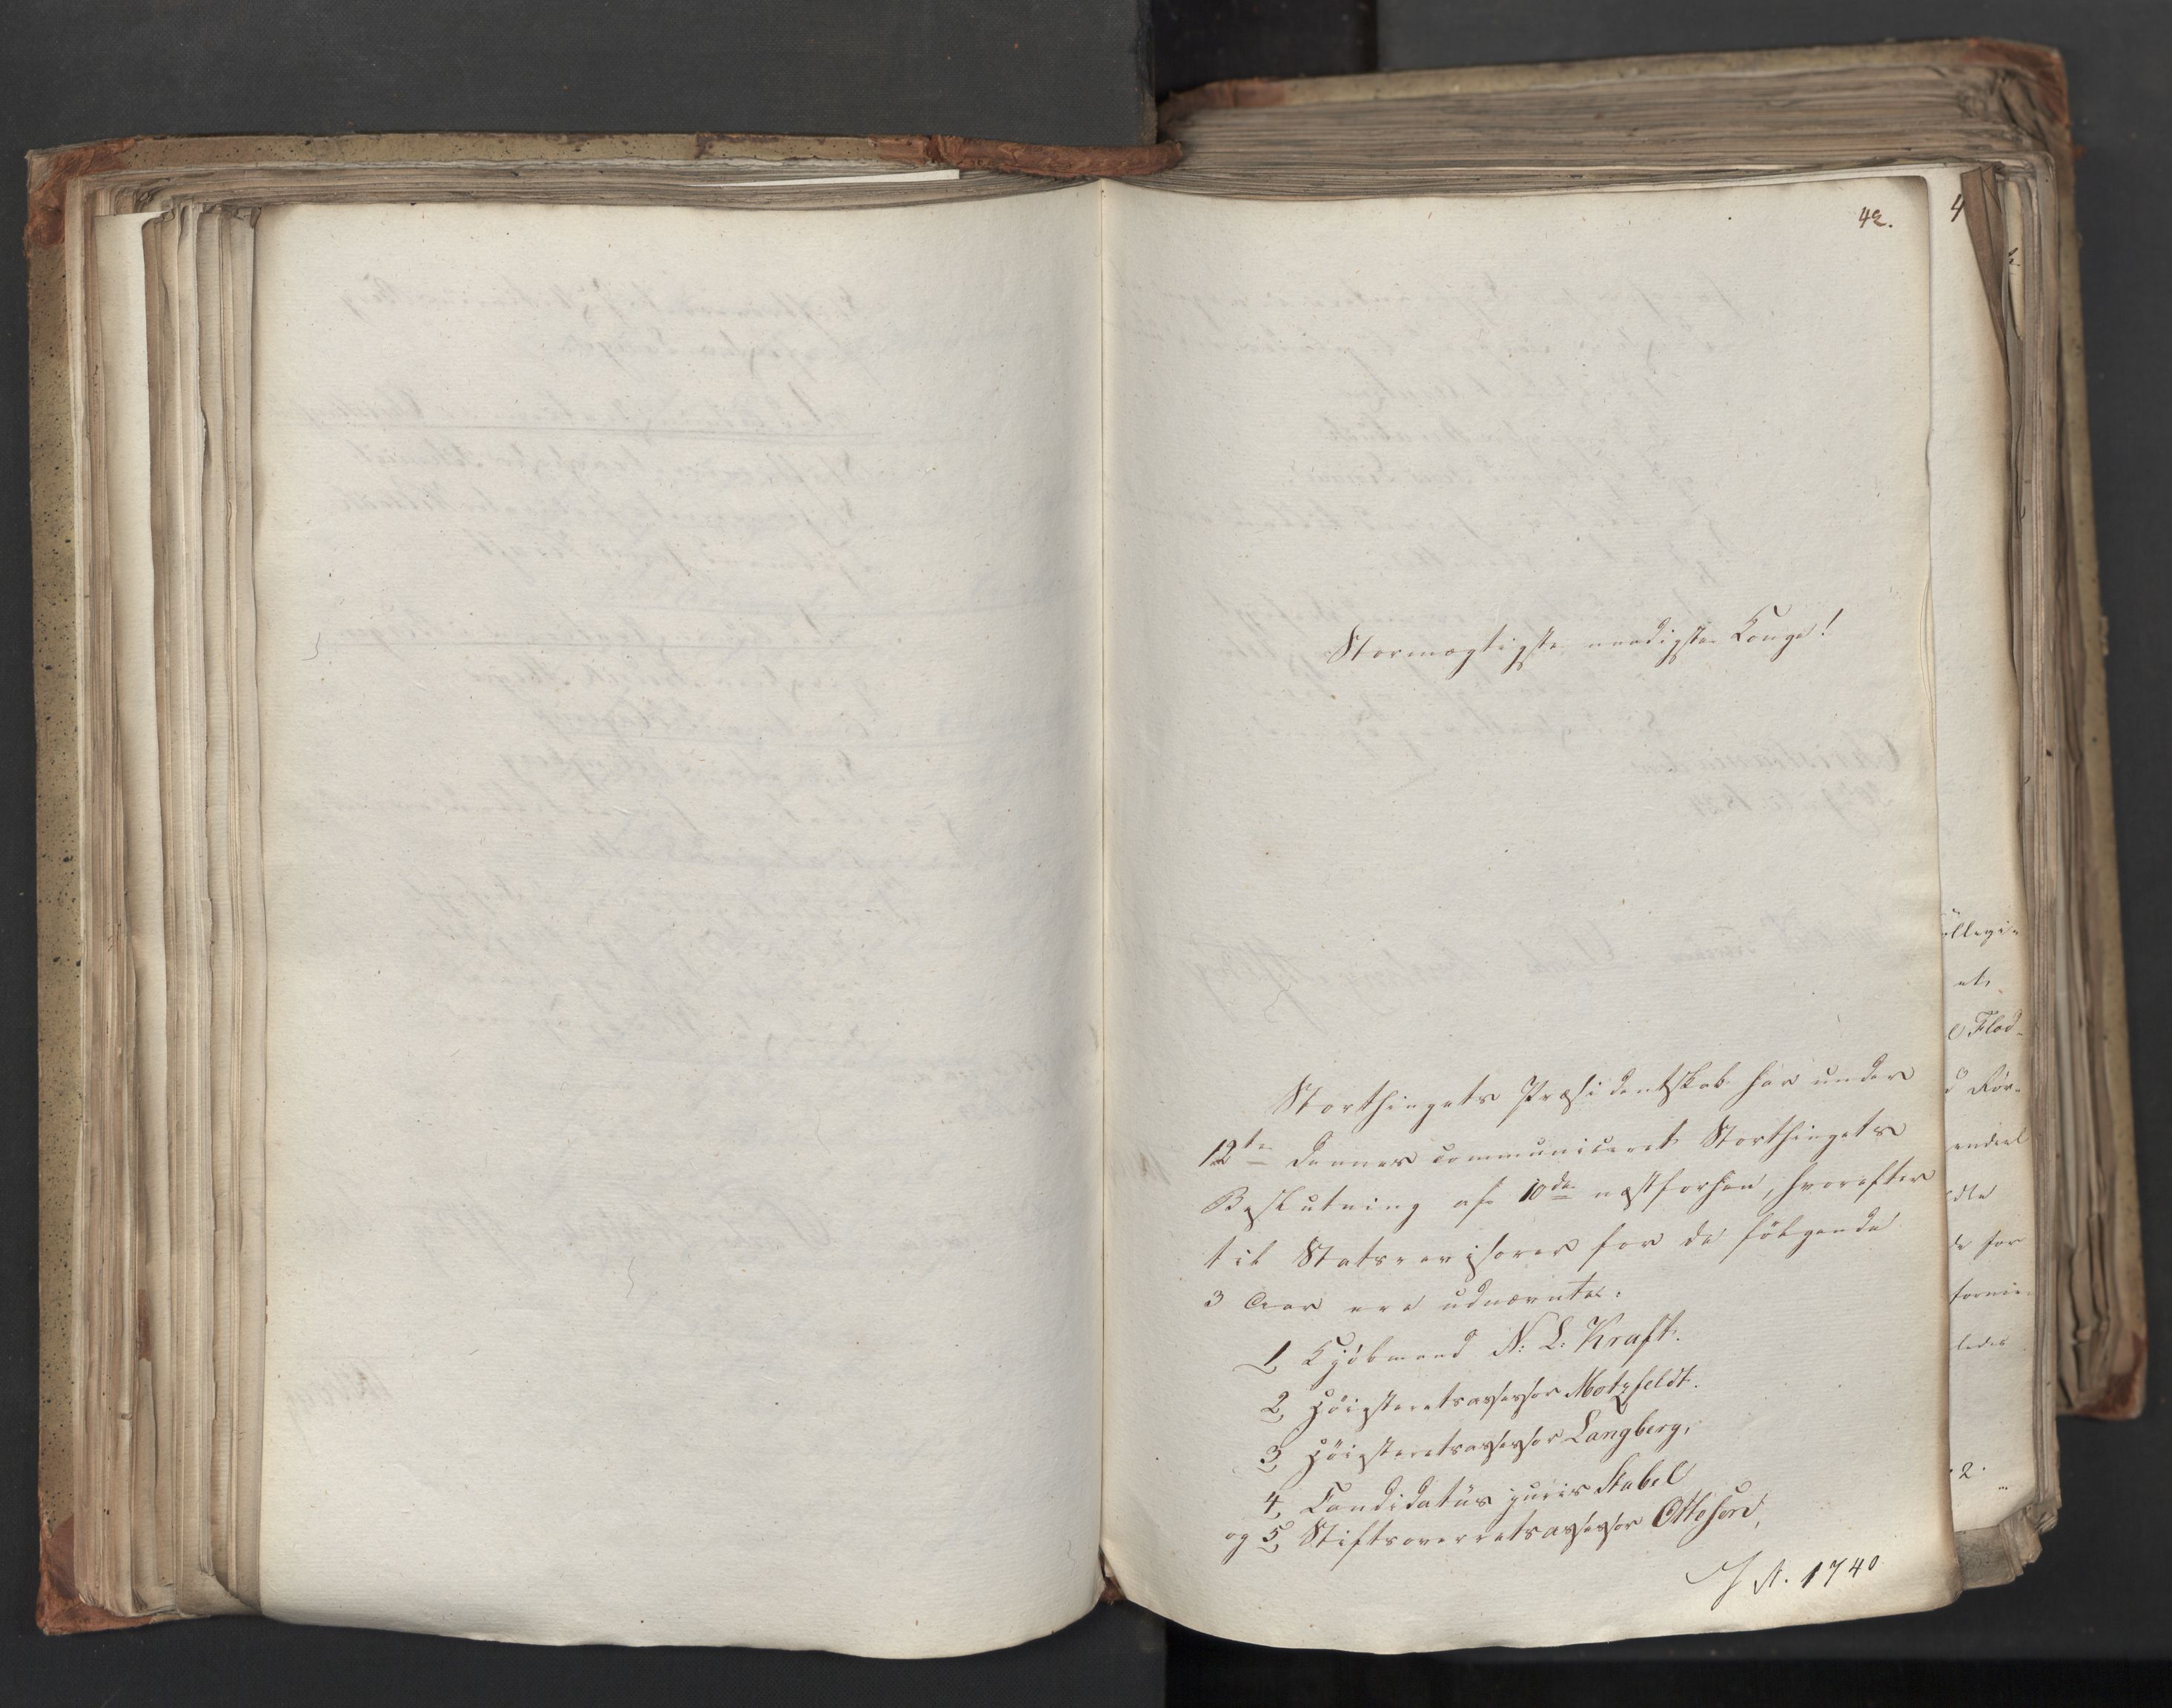 42.
4
Stormægtigste naadigste Konge!
Storthingets Præsidentskab har under
12te dennes communiceret Storthingets
Beslutning af 10de næstforhen, hvorefter
til Statsrevisorer for de følgende
3 Aar ere udnævnte:
1, Kjøbmand N: L: Kraft.
2, Høiesteretsassessor Motzfeldt.
3, Høiesteretsassessor Langberg,
4, Candidatus juris Stabel
og 5, Stiftsoverretsassessor Ottesen,
J N. 1740